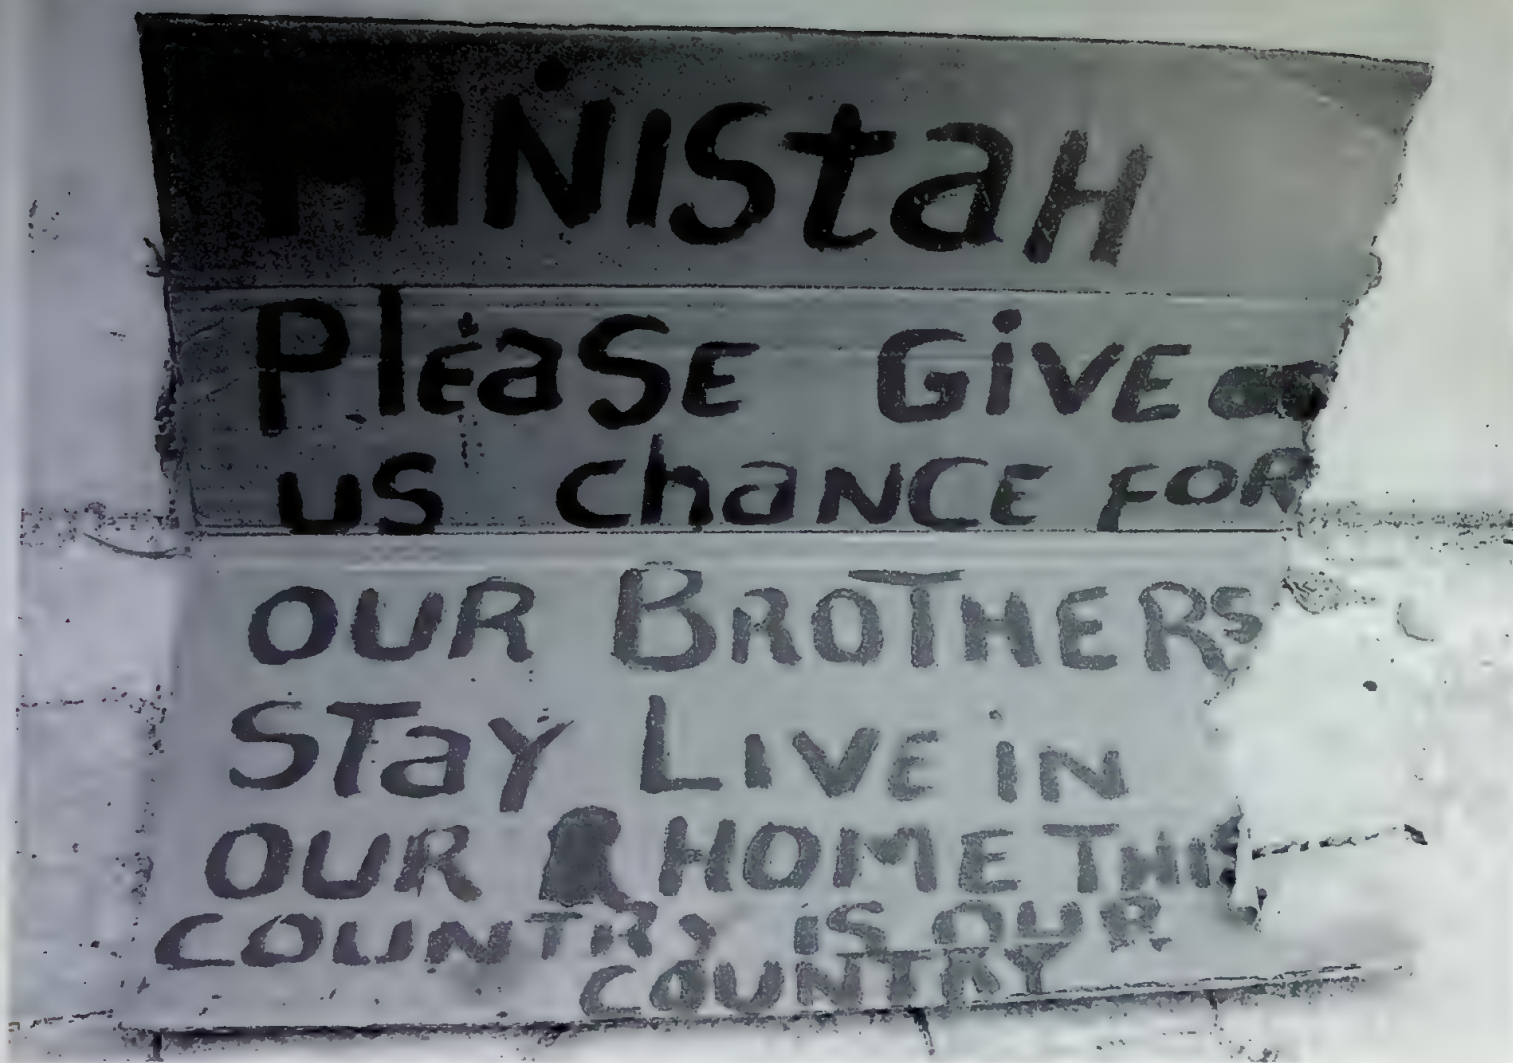 MINIStaH
PlEaSE GiVE
uS ChaNCE FOR
OUR BROTHERS
STaY LIVE iN
OUR HOME THIS
COUNTRY IS OUR
COUNTRY